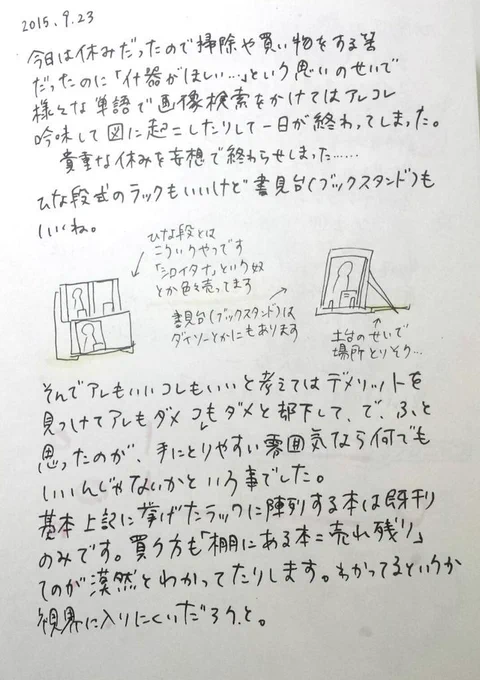 2015.9.23
今日は休みだったので掃除や買い物をする筈
だったのに「什器がほしい…」という思いのせいで
様々な単語で画像検索をかけてはアレコレ
吟味して図に起こしたりして一日が終わってしまった。
貴重な休みを妄想で終わらせしまった……
ひな段式のラックもいいけど書見台(ブックスタンド)も
いいね。
ひな段とは
こういうやつです
「シロイタナ」という奴
とか色々売ってます
書見台(ブックスタンド)は
ダイソーとかにもあります
土台のせいで
場所とりそう…
そんでアレもいいコレもいいと考えてはデメリットを
見つけてアレもダメコレもダメと却下して、で、ふと
思ったのが、手にとりやすい雰囲気なら何でも
いいんじゃないかという事でした。
基本上記に挙げたラックに陳列する本は既刊
のみです。買う方も「棚にある本=売れ残り」
てのが漠然とわかってたりします。わかってるというか
視界に入りにくいだろうと。